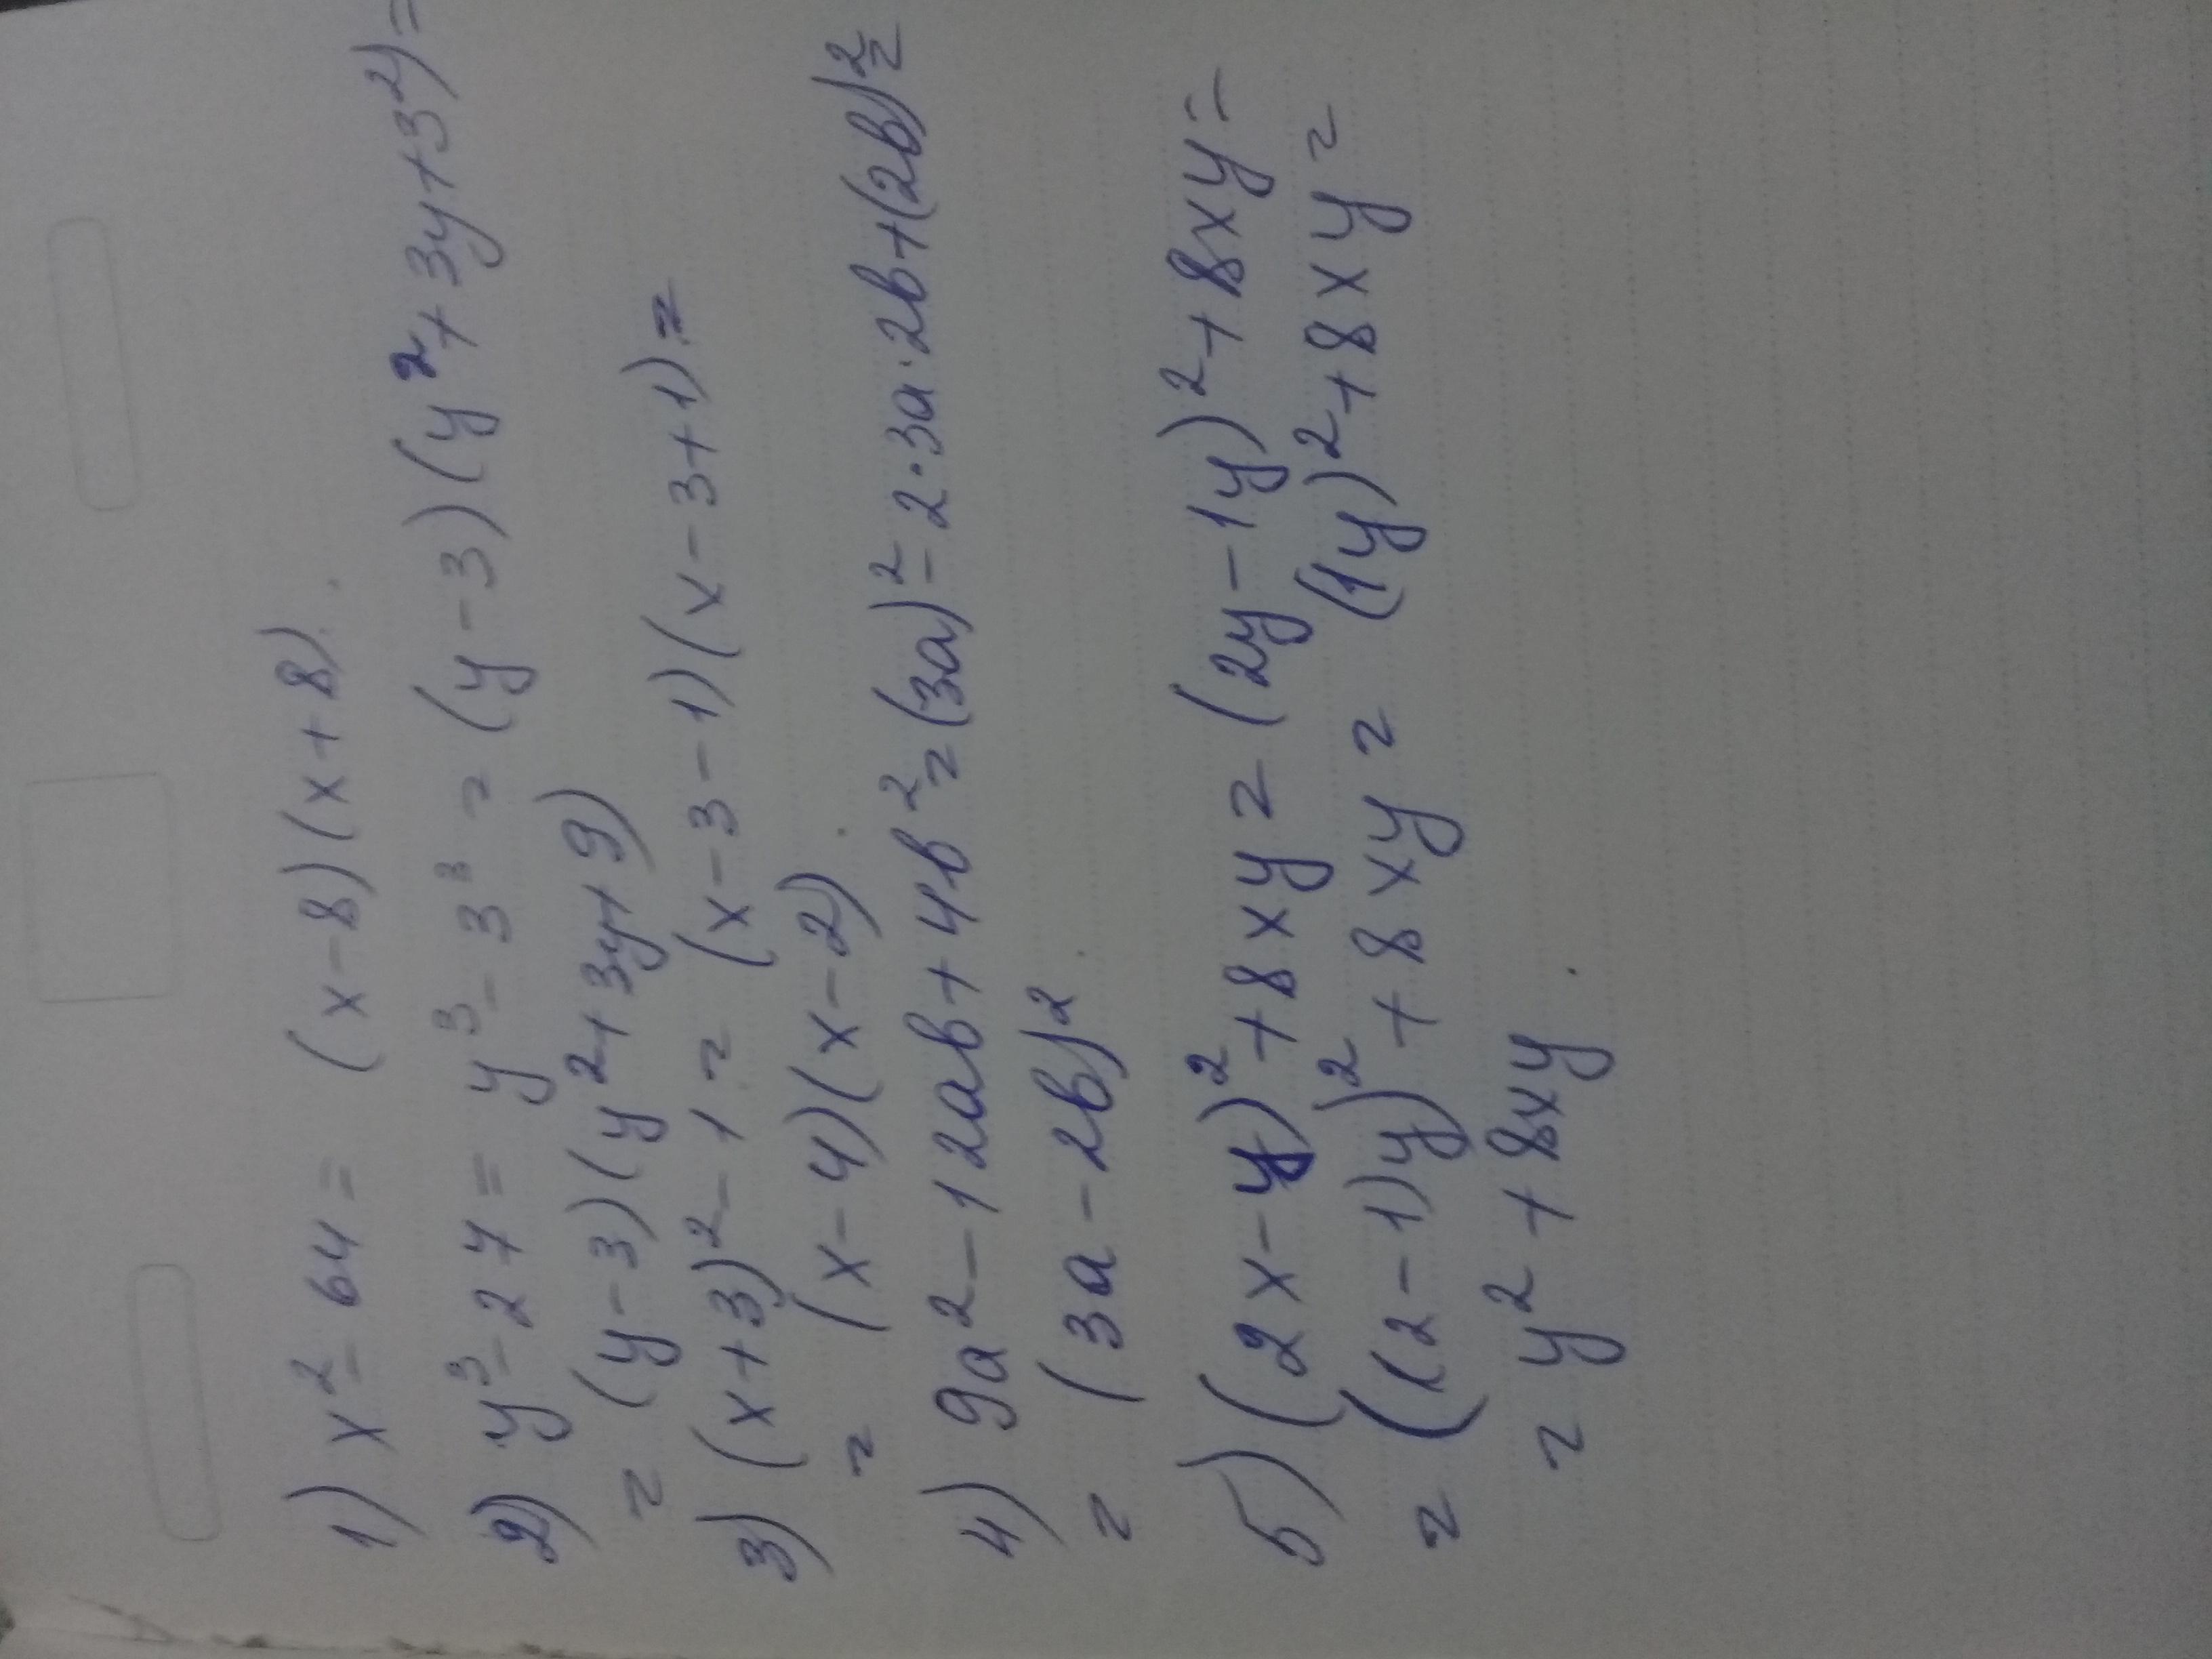 1) x² - 64 = (x - 8)(x + 8).
2) y³ - 27 = y³ - 3³ = (y - 3)(y² + 3y + 3²) =
= (y - 3)(y² + 3y + 9)
3) (x + 3)² - 1 = (x - 3 - 1)(x - 3 + 1) =
= (x - 4)(x - 2).
4) 9a² - 12ab + 4b² = (3a)² - 2·3a·2b + (2b)² =
= (3a - 2b)².
5) (2x - y)² + 8xy = (2y - 1y)² + 8xy =
= ((2 - 1)y)² + 8xy = (1y)² + 8xy =
= y² + 8xy.